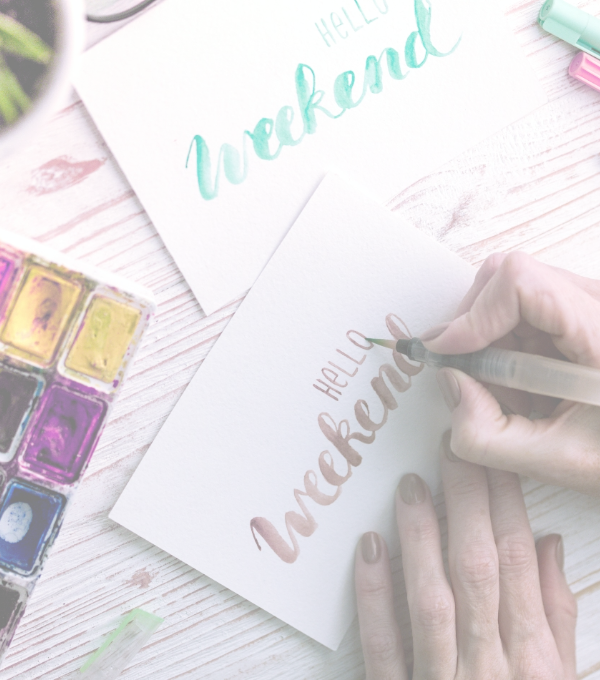 HELLO
weekend
HELLO
weekend